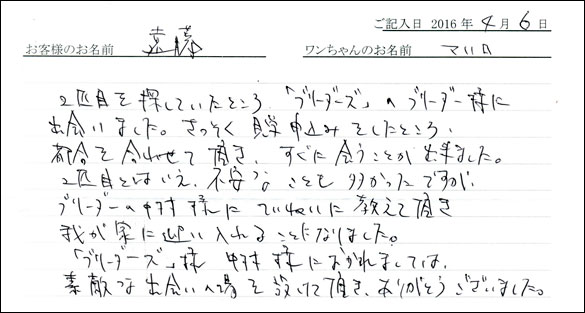 ご記入日 2016年 4月 6日
お客様のお名前 遠藤 ワンちゃんのお名前 マハロ
2匹目を探していたところ、「ブリーダーズ」のブリーダー様に
出会いました。さっそく見学申込みをしたところ、
都合を合わせて頂き、すぐに会うことが出来ました。
2匹目とはいえ、不安なことも多かったですが、
ブリーダーの中村様にていねいに教えて頂き
我が家に迎い入れることになりました。
「ブリーダーズ」様 中村様におかれましては、
素敵な出会いの場を設けて頂き、ありがとうございました。